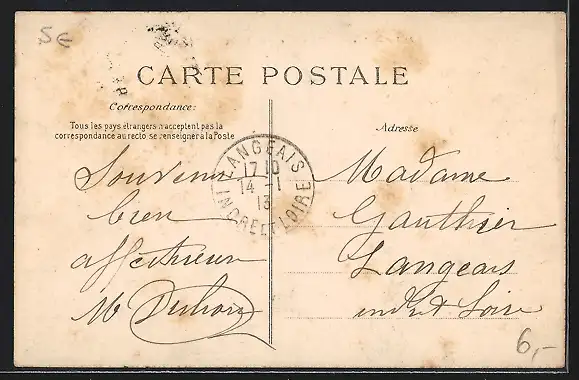 5€
CARTE POSTALE
Correspondance:
Tous les pays étrangers n'acceptent pas la
correspondance au recto se renseigner à la Poste
Adresse
Souvenir
bien
affectueux
M
LANGEAIS
17 10
14 - 1
13
INDRE ET LOIRE
Madame
Gauthier
Langeais
indre et Loire
6,-